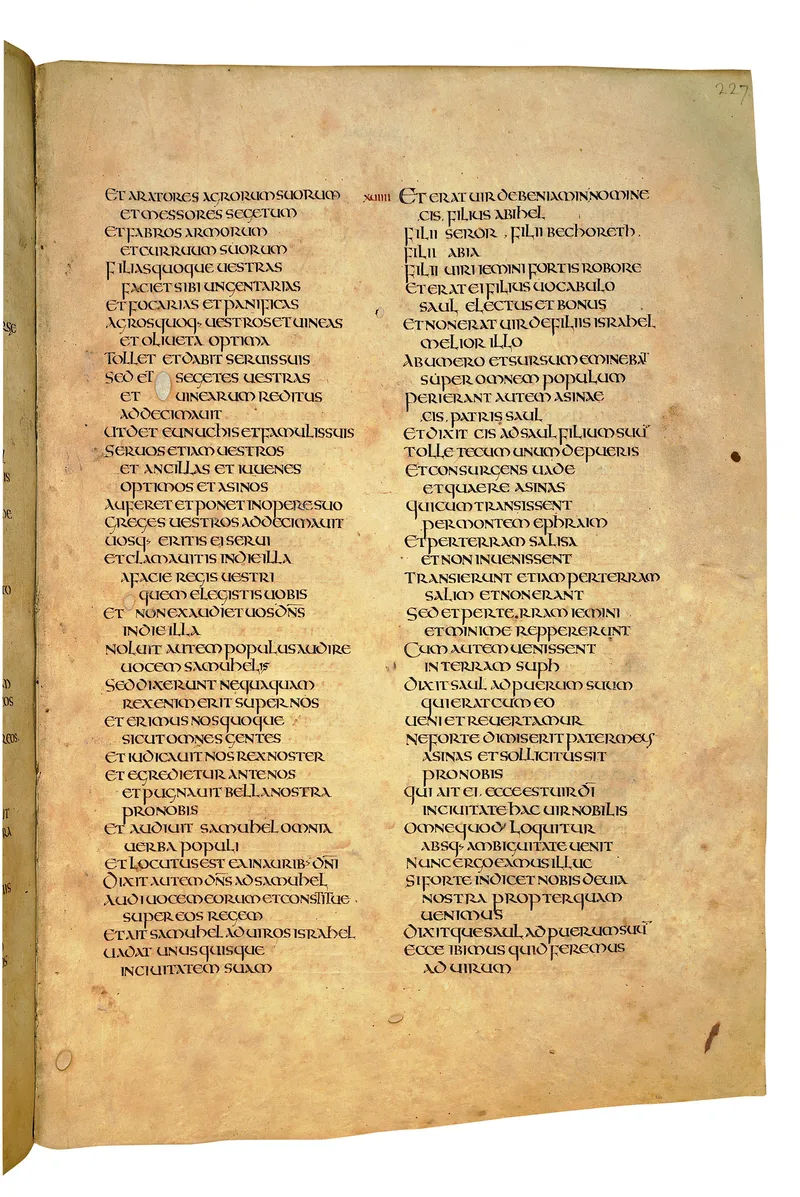 227
ET ARATORES AGRORUM SUORUM
ET MESSORES SEGETUM
ET FABROS ARMORUM
ET CURRUUM SUORUM
FILIAS QUOQUE UESTRAS
FACIET SIBI UNGENTARIAS
ET FOCARIAS ET PANIFICAS
AGROS QUOQ· UESTROS ET UINEAS
ET OLIUETA OPTIMA
TOLLET ET DABIT SERUIS SUIS
SED ET SEGETES UESTRAS
ET UINEARUM REDITUS
ADDECIMAUIT
UT DET EUNUCHIS ET FAMULIS SUIS
SERUOS ETIAM UESTROS
ET ANCILLAS ET IUUENES
OPTIMOS ET ASINOS
AUFERET ET PONET IN OPERE SUO
GREGES UESTROS ADDECIMAUIT
UOSQ· ERITIS EI SERUI
ET CLAMAUITIS IN DIE ILLA
A FACIE REGIS UESTRI
QUEM ELEGISTIS UOBIS
ET NON EXAUDIET UOS DN̄S
IN DIE ILLA
NOLUIT AUTEM POPULUS AUDIRE
UOCEM SAMUHELIS
SED DIXERUNT NEQUAQUAM
REX ENIM ERIT SUPER NOS
ET ERIMUS NOS QUOQUE
SICUT OMNES GENTES
ET IUDICAUIT NOS REX NOSTER
ET EGREDIETUR ANTE NOS
ET PUGNAUIT BELLA NOSTRA
PRO NOBIS
ET AUDIUIT SAMUHEL OMNIA
UERBA POPULI
ET LOCUTUS EST EA IN AURIB· DN̄I
DIXIT AUTEM DN̄S AD SAMUHEL
AUDI UOCEM EORUM ET CONSTITUE
SUPER EOS REGEM
ET AIT SAMUHEL AD UIROS ISRAHEL
UADAT UNUSQUISQUE
IN CIUITATEM SUAM
XUIIII ET ERAT UIR DE BENIAMIN NOMINE
CIS. FILIUS ABIHEL
FILII SEROR . FILII BECHORETH.
FILII ABIA
FILII UIRI IEMINI FORTIS ROBORE
ET ERAT EI FILIUS UOCABULO
SAUL ELECTUS ET BONUS
ET NON ERAT UIR DE FILIIS ISRAHEL
MELIOR ILLO
AB UMERO ET SURSUM EMINEBAT
SUPER OMNEM POPULUM
PERIERANT AUTEM ASINAE
CIS. PATRIS SAUL
ET DIXIT CIS AD SAUL FILIUM SUŪ
TOLLE TECUM UNUM DE PUERIS
ET CONSURGENS UADE
ET QUAERE ASINAS
QUI CUM TRANSISSENT
PER MONTEM EPHRAIM
ET PER TERRAM SALISA
ET NON INUENISSENT
TRANSIERUNT ETIAM PER TERRAM
SALIM ET NON ERANT
SED ET PER TERRAM IEMINI
ET MINIME REPPERERUNT
CUM AUTEM UENISSENT
IN TERRAM SUPH
DIXIT SAUL AD PUERUM SUUM
QUI ERAT CUM EO
UENI ET REUERTAMUR
NE FORTE DIMISERIT PATER MEUS
ASINAS ET SOLLICITUS SIT
PRO NOBIS
QUI AIT EI. ECCE EST UIR DĪ
IN CIUITATE HAC UIR NOBILIS
OMNE QUOD LOQUITUR
ABSQ· AMBIGUITATE UENIT
NUNC ERGO EAMUS ILLUC
SI FORTE INDICET NOBIS DE UIA
NOSTRA PROPTER QUAM
UENIMUS
DIXITQUE SAUL AD PUERUM SUŪ
ECCE IBIMUS QUID FEREMUS
AD UIRUM